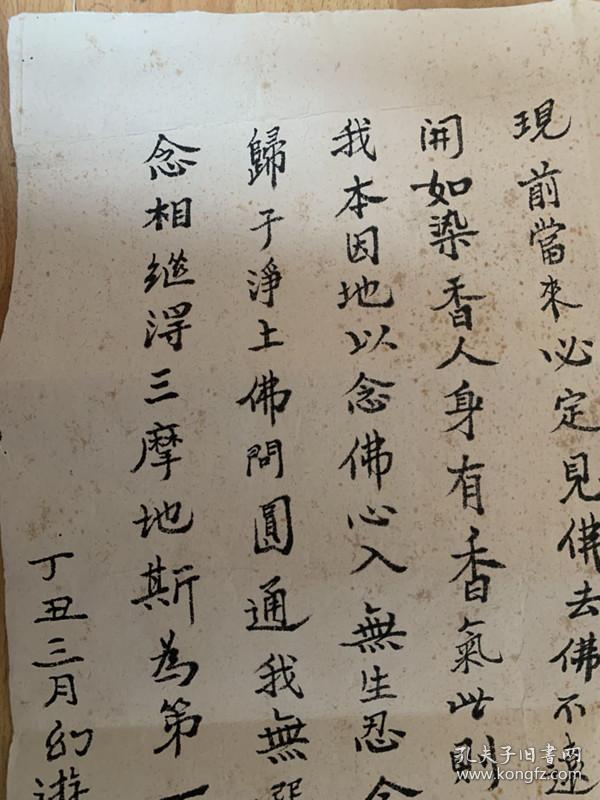 現前當來必定見佛去佛不遠
開如染香人身有香氣此則
我本因地以念佛心入無生忍今
歸于淨土佛問圓通我無
念相继淂三摩地斯為第一
丁丑三月幻遊
孔夫子旧書网
www.kongfz.com